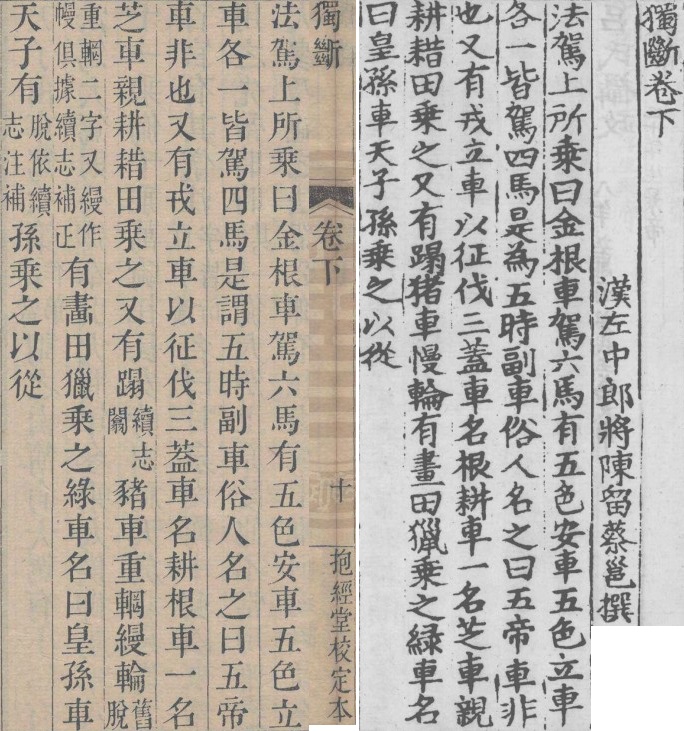 獨斷卷下
漢左中郎將陳留蔡邕撰
法駕上所乗曰金根車駕六馬有五色安車五色立車
各一皆駕四馬是為五時副車俗人名之曰五帝車非
也又有戎立車以征伐三蓋車名根耕車一名芝車親
耕耤田乗之又有蹋猪車慢輪有畫田獵乗之緑車名
曰皇孫車天子孫乗之以從
獨斷 卷下 十 抱經堂校定本
法駕上所乘曰金根車駕六馬有五色安車五色立
車各一皆駕四馬是謂五時副車俗人名之曰五帝
車非也又有戎立車以征伐三葢車名耕根車一名
芝車親耕耤田乘之又有蹋續志闟豬車重輞縵輪舊脫
重輞二字又縵作幔俱據續志補正有畵田獵乘之綠車名曰皇孫車
天子有脫依續志注補孫乘之以從